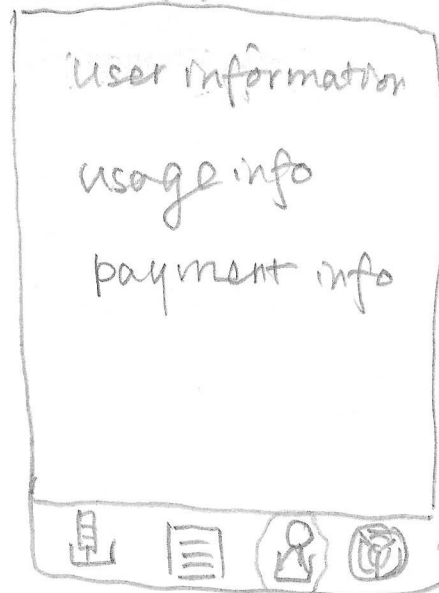 user information
usage info
payment info